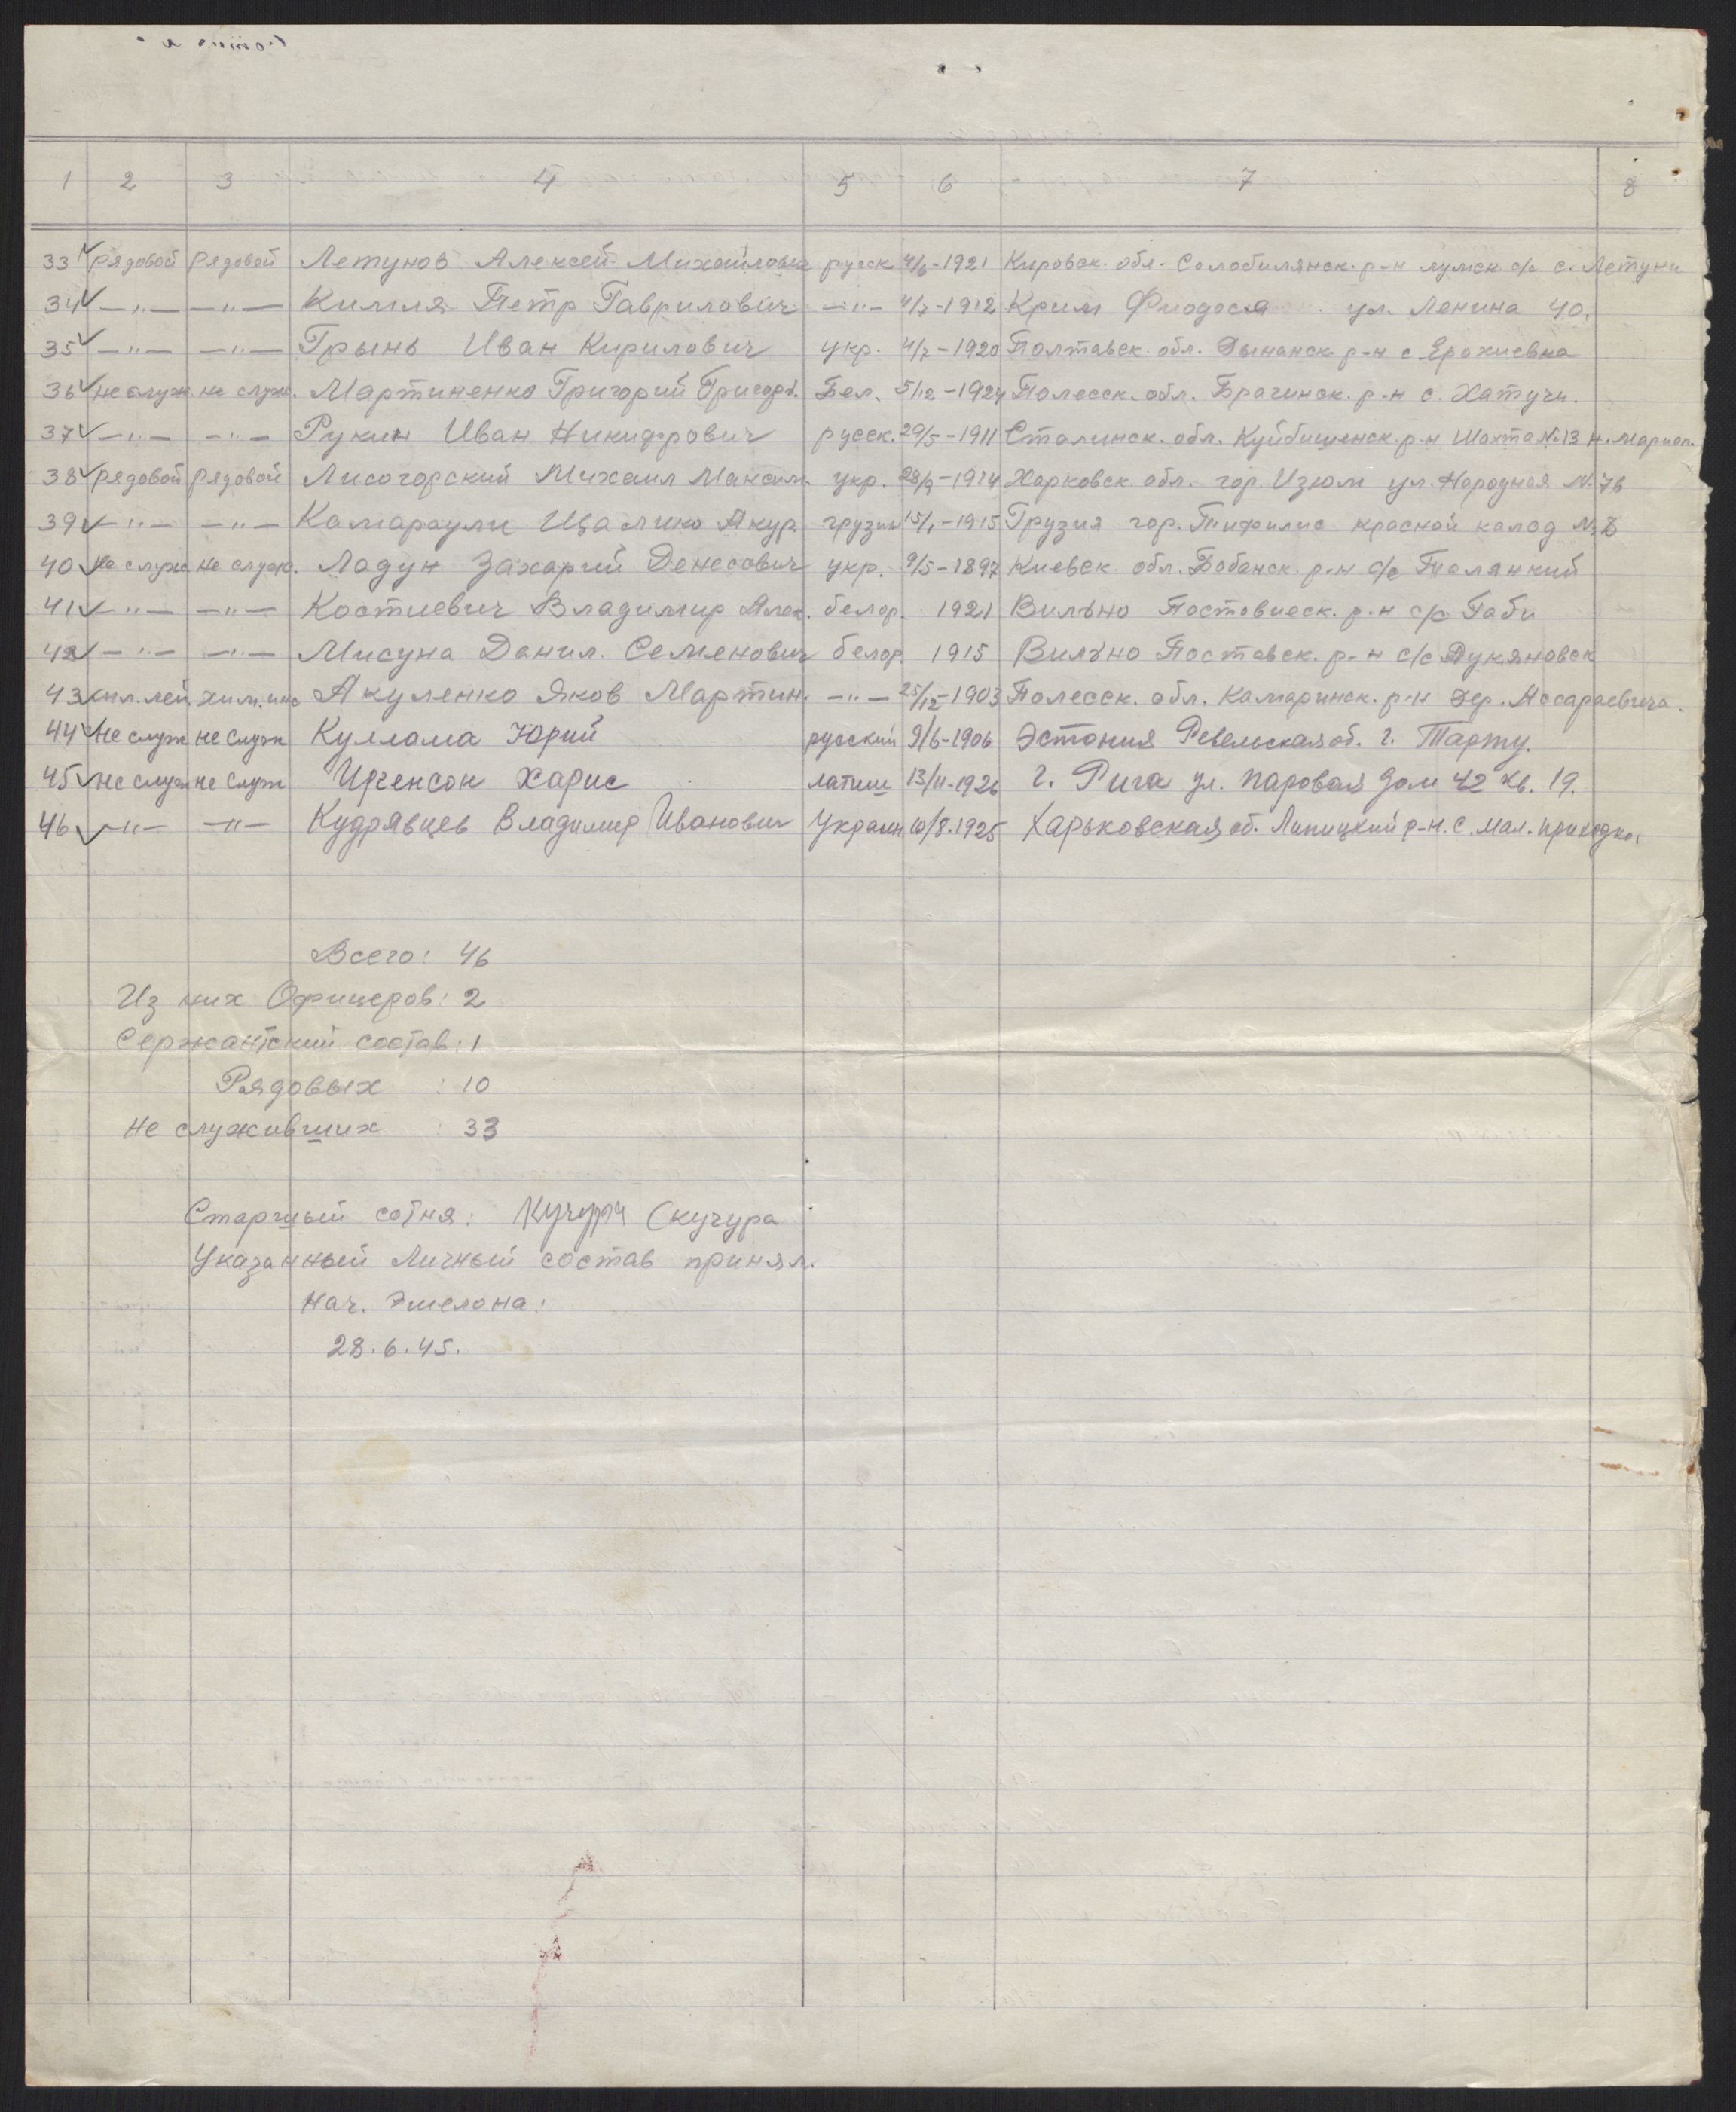 1 2 3 4 5 6 7 8
33 рядовой рядовой Летунов Алексей Михайлович русск 4/6-1921 Кировск. обл. Солобилянск. р-н с/с с. Летуни
34 —"— —"— Килля Петр Гаврилович —"— 4/7-1912 Крим Фиодося ул. Ленина 40.
35 —"— —"— Грынь Иван Кирилович укр. 4/7-1920 Полтавск. обл. р-н с Ерохиевка
36 не служ. не служ. Мартиненко Григорий Григорь. Бел. 5/12-1924 Полесск. обл. Брагинск. р-н с. Хатучи.
37 —"— —"— Рукин Иван Никифрович русск. 29/5-1911 Сталинск. обл. Куйбишенск. р-н Шахта №13 н. Мариоп.
38 рядовой рядовой Лисогорский Михаил Максим. укр. 28/9-1914 Харковск. обл. гор. Изюм ул. Народная №76
39 —"— —"— Камараули Цвалико Якур. грузин 15/1-1915 Грузия гор. Тифилис красной калод № 8
40 не служ не служ. Ладун Захарий Денесович укр. 9/5-1897 Киевск. обл. Бобанск. р-н с/с Полянкий
41 —"— —"— Костиевич Владимир Алек. белор. 1921 Вильно Постовиеск. р-н с/с Габи
42 —"— —"— Мисуна Данил. Семенович белор. 1915 Вильно Поставск. р-н с/с Лукяновск
43 мл. лей. хим. инс Акуленко Яков Мартин. —"— 25/12-1903 Полесск. обл. Камаринск. р-н дер. Ассараевича.
44 не служ не служ Куллама Юрий русский 9/6-1906 Эстония Ревельская об. г. Тарту.
45 не служ не служ Иргенсон Харис латиш 13/11-1926 г. Рига ул. Паровая дом 42 кв. 19.
46 —"— —"— Кудрявцев Владимир Иванович Украин 10/8.1925 Харьковская об. Липицкий р-н. с. Мал. приходко.
Всего: 46
Из них Офицеров: 2
Сержантский состав: 1
Рядовых : 10
Не служивших : 33
Старший сотня: Кучура (кучура
Указанный Личный состав принял.
Нач. Эшелона:
28.6.45.